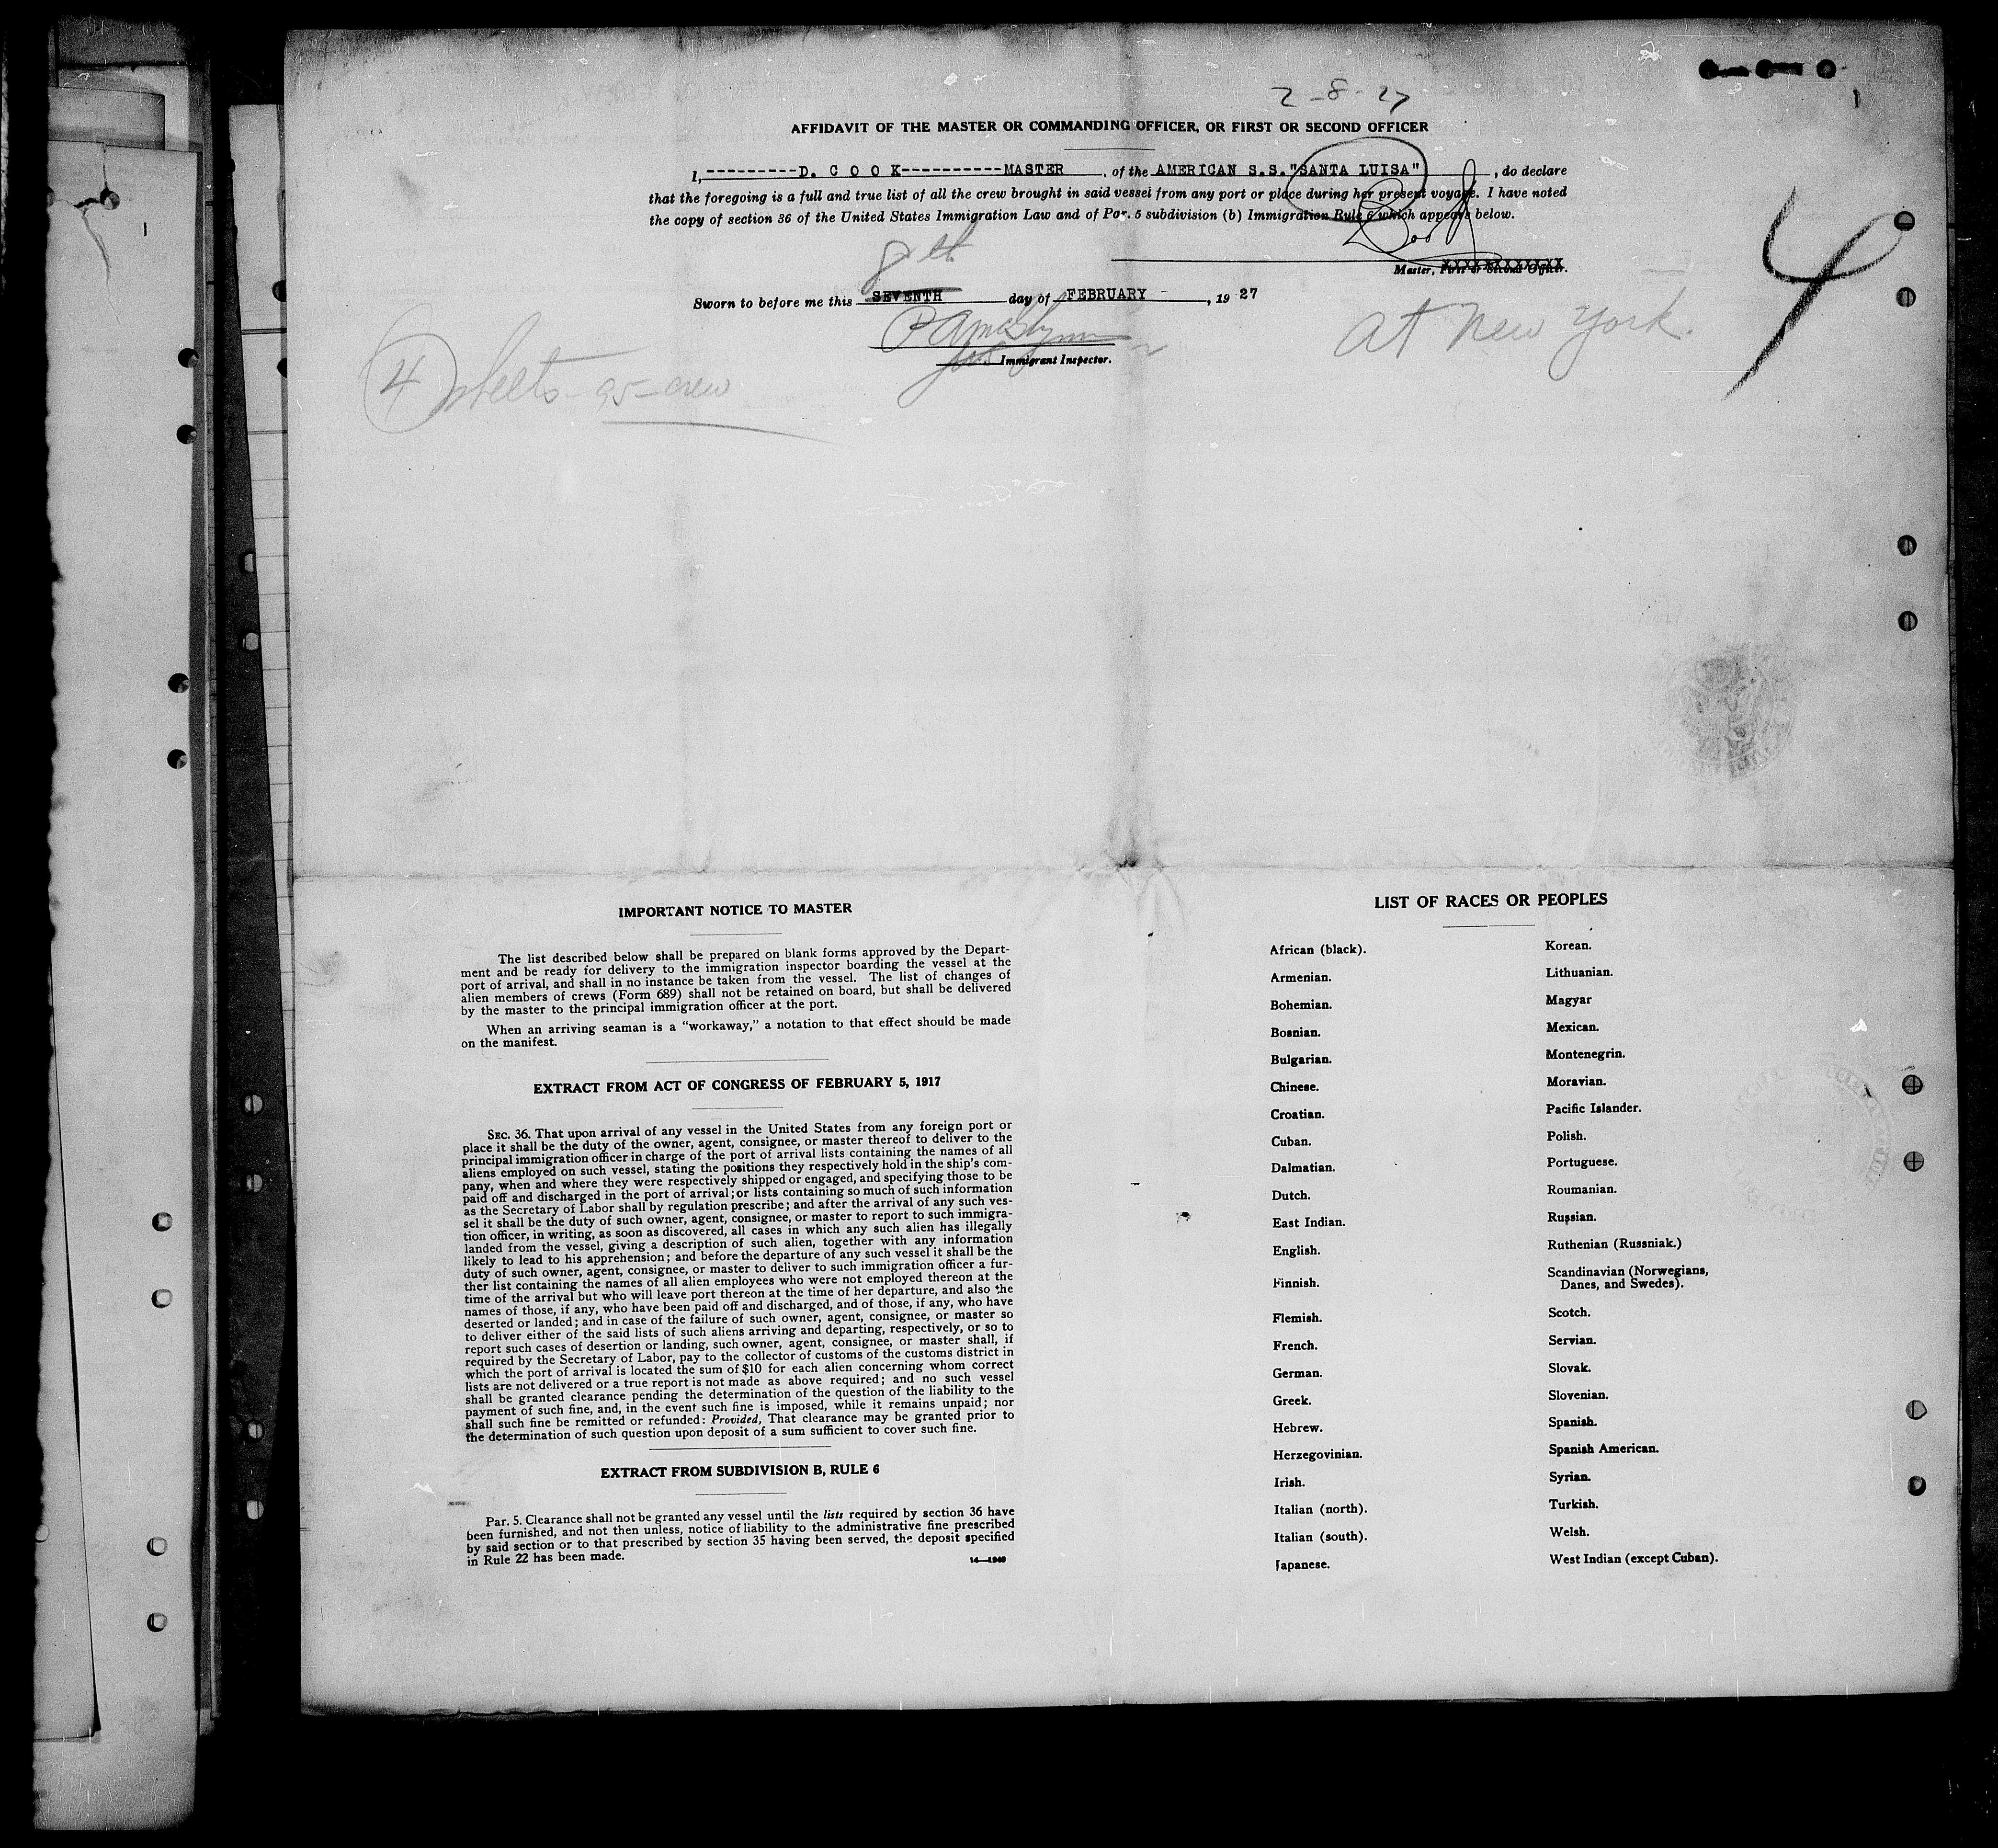 2-8-27
AFFIDAVIT OF THE MASTER OR COMMANDING OFFICER, OR FIRST OR SECOND OFFICER
I, ---------D. C O O K----------MASTER, of the AMERICAN S.S."SANTA LUISA", do declare
that the foregoing is a full and true list of all the crew brought in said vessel from any port or place during her present voyage. I have noted
the copy of section 36 of the United States Immigration Law and of Par. 5 subdivision (b) Immigration Rule 6 which appears below.
Master, First or Second Officer.
8th
Sworn to before me this SEVENTH day of FEBRUARY, 1927
at New York.
4
Immigrant Inspector.
4 sheets - 95 - crew
IMPORTANT NOTICE TO MASTER
The list described below shall be prepared on blank forms approved by the Depart-
ment and be ready for delivery to the immigration inspector boarding the vessel at the
port of arrival, and shall in no instance be taken from the vessel. The list of changes of
alien members of crews (Form 689) shall not be retained on board, but shall be delivered
by the master to the principal immigration officer at the port.
When an arriving seaman is a "workaway," a notation to that effect should be made
on the manifest.
EXTRACT FROM ACT OF CONGRESS OF FEBRUARY 5, 1917
SEC. 36. That upon arrival of any vessel in the United States from any foreign port or
place it shall be the duty of the owner, agent, consignee, or master thereof to deliver to the
principal immigration officer in charge of the port of arrival lists containing the names of all
aliens employed on such vessel, stating the positions they respectively hold in the ship's com-
pany, when and where they were respectively shipped or engaged, and specifying those to be
paid off and discharged in the port of arrival; or lists containing so much of such information
as the Secretary of Labor shall by regulation prescribe; and after the arrival of any such ves-
sel it shall be the duty of such owner, agent, consignee, or master to report to such immigra-
tion officer, in writing, as soon as discovered, all cases in which any such alien has illegally
landed from the vessel, giving a description of such alien, together with any information
likely to lead to his apprehension; and before the departure of any such vessel it shall be the
duty of such owner, agent, consignee, or master to deliver to such immigration officer a fur-
ther list containing the names of all alien employees who were not employed thereon at the
time of the arrival but who will leave port thereon at the time of her departure, and also the
names of those, if any, who have been paid off and discharged, and of those, if any, who have
deserted or landed; and in case of the failure of such owner, agent, consignee, or master so
to deliver either of the said lists of such aliens arriving and departing, respectively, or so to
report such cases of desertion or landing, such owner, agent, consignee, or master shall, if
required by the Secretary of Labor, pay to the collector of customs of the customs district in
which the port of arrival is located the sum of $10 for each alien concerning whom correct
lists are not delivered or a true report is not made as above required; and no such vessel
shall be granted clearance pending the determination of the question of the liability to the
payment of such fine, and, in the event such fine is imposed, while it remains unpaid; nor
shall such fine be remitted or refunded: Provided, That clearance may be granted prior to
the determination of such question upon deposit of a sum sufficient to cover such fine.
EXTRACT FROM SUBDIVISION B, RULE 6
Par. 5. Clearance shall not be granted any vessel until the lists required by section 36 have
been furnished, and not then unless, notice of liability to the administrative fine prescribed
by said section or to that prescribed by section 35 having been served, the deposit specified
in Rule 22 has been made.
14—1940
LIST OF RACES OR PEOPLES
African (black).
Armenian.
Bohemian.
Bosnian.
Bulgarian.
Chinese.
Croatian.
Cuban.
Dalmatian.
Dutch.
East Indian.
English.
Finnish.
Flemish.
French.
German.
Greek.
Hebrew.
Herzegovinian.
Irish.
Italian (north).
Italian (south).
Japanese.
Korean.
Lithuanian.
Magyar
Mexican.
Montenegrin.
Moravian.
Pacific Islander.
Polish.
Portuguese.
Roumanian.
Russian.
Ruthenian (Russniak.)
Scandinavian (Norwegians,
Danes, and Swedes).
Scotch.
Servian.
Slovak.
Slovenian.
Spanish.
Spanish American.
Syrian.
Turkish.
Welsh.
West Indian (except Cuban).